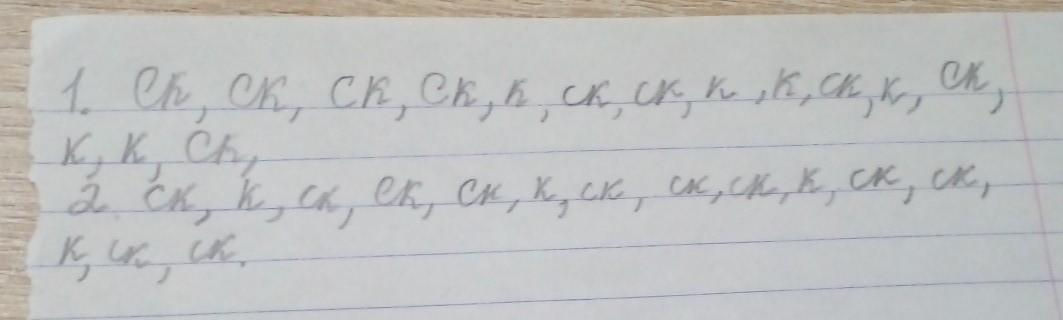 1. Ск, СК, СК, Ск, к, ск, ск, к, к, ск, к, Ск,
к, к, Ск,
2. Ск, к, ск, Ск, Ск, к, ск, ск, ск, к, ск, ск,
к, ск, ск.